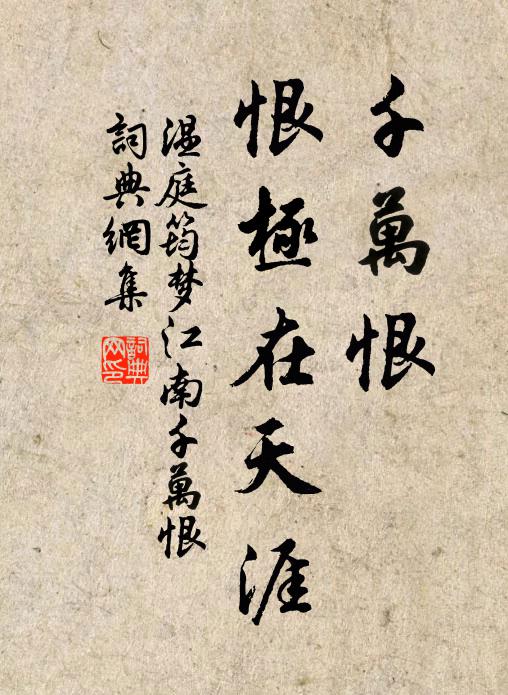 千萬恨
恨極在天涯
温庭筠梦江南千萬恨
詞典網集
詞典网印